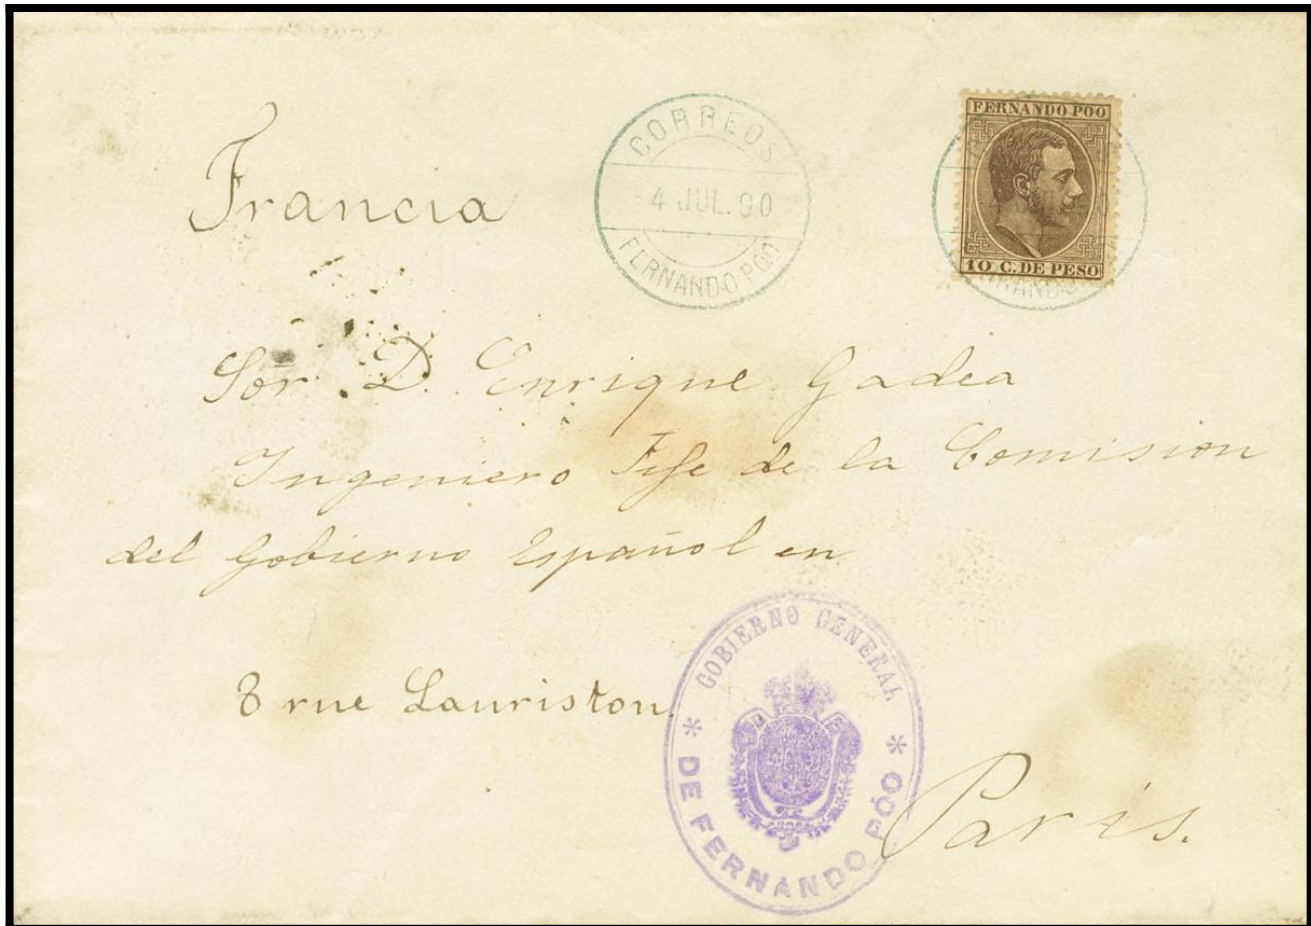 Francia
CORREOS
4 JUL. 90
FERNANDO PÓO
FERNANDO POO
10 C. DE PESO
Sor. D. Enrique Gadea
Ingeniero Jefe de la Comision
del Gobierno Español en
8 rue Lauriston.
GOBIERNO GENERAL
* DE FERNANDO PÓO *
Paris.